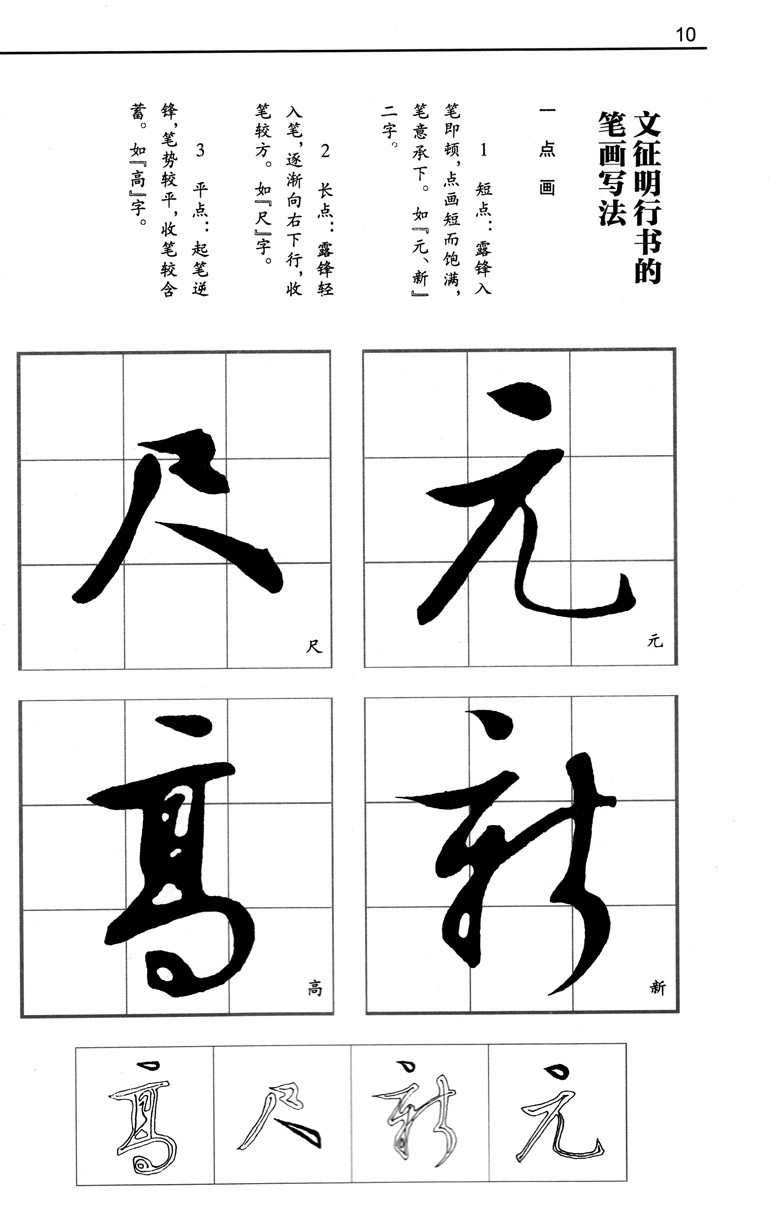 10
文征明行书的
笔画写法
一 点 画
1 短点：露锋入
笔即顿，点画短而饱满，
笔意承下。如『元、新』
二字。
2 长点：露锋轻
入笔，逐渐向右下行，收
笔较方。如『尺』字。
3 平点：起笔逆
锋，笔势较平，收笔较含
蓄。如『高』字。
元
元
新
新
尺
尺
高
高
元
新
尺
高